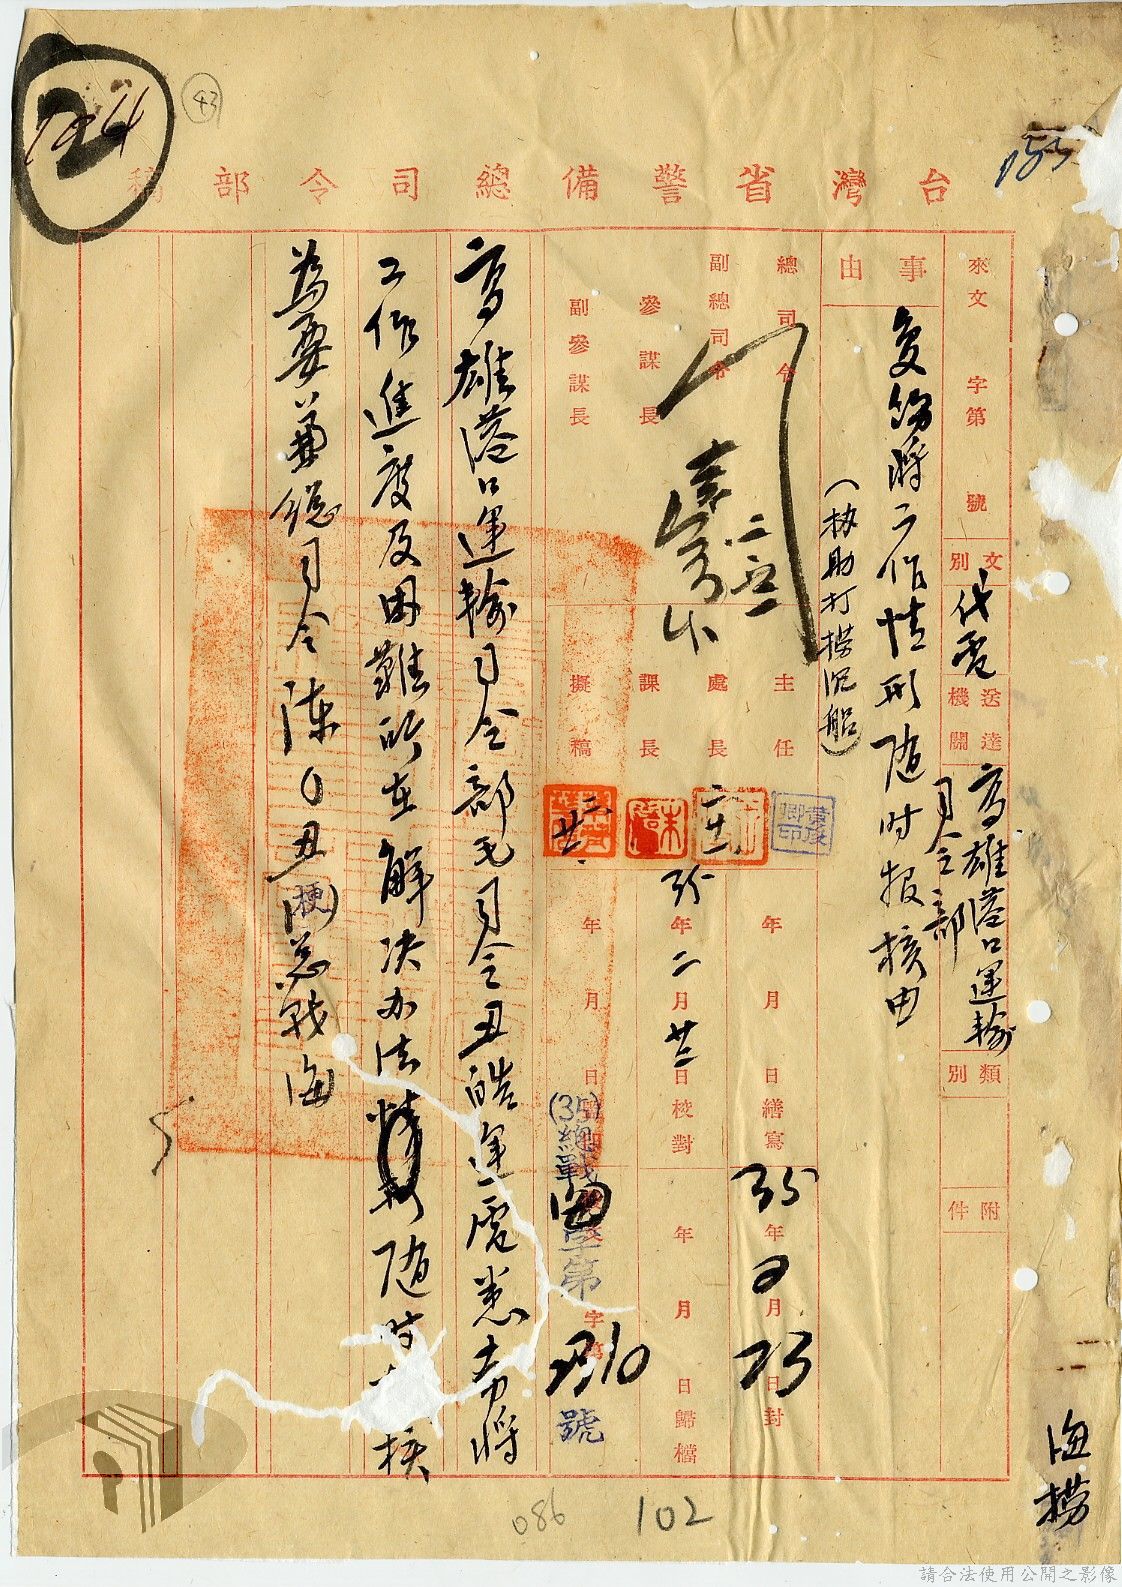 台灣省警備總司令部稿
來文 字第 號
文別 代電
送達機關 高雄港口運輸司令部
類別
附件
事由
復飭將工作情形隨時報核由
(協助打撈沉船)
總司令
副總司令
參謀長
副參謀長
主任
處長
課長
擬稿
年 月 日繕寫
35年2月23日封
35年二月廿三日校對
年 月 日歸檔
年 月 日
(35)總戰海字第 號
高雄港口運輸司令部毛司令丑皓運電悉希將
工作進度及困難所在解決办法 隨時 核
為要兼總司令陳○丑(梗)总戰海
海撈
43
086
102
請合法使用公開之影像